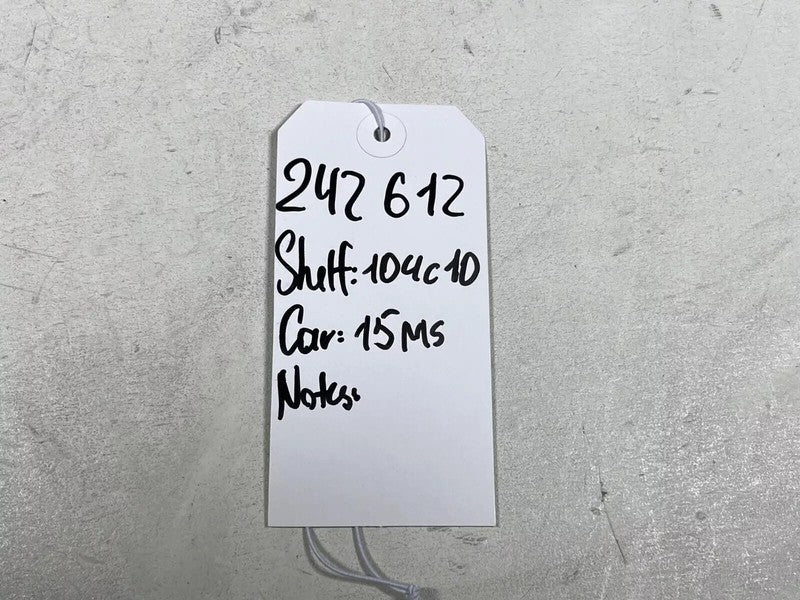 242 612
Shelf: 104c10
Car: 15 MS
Notes: